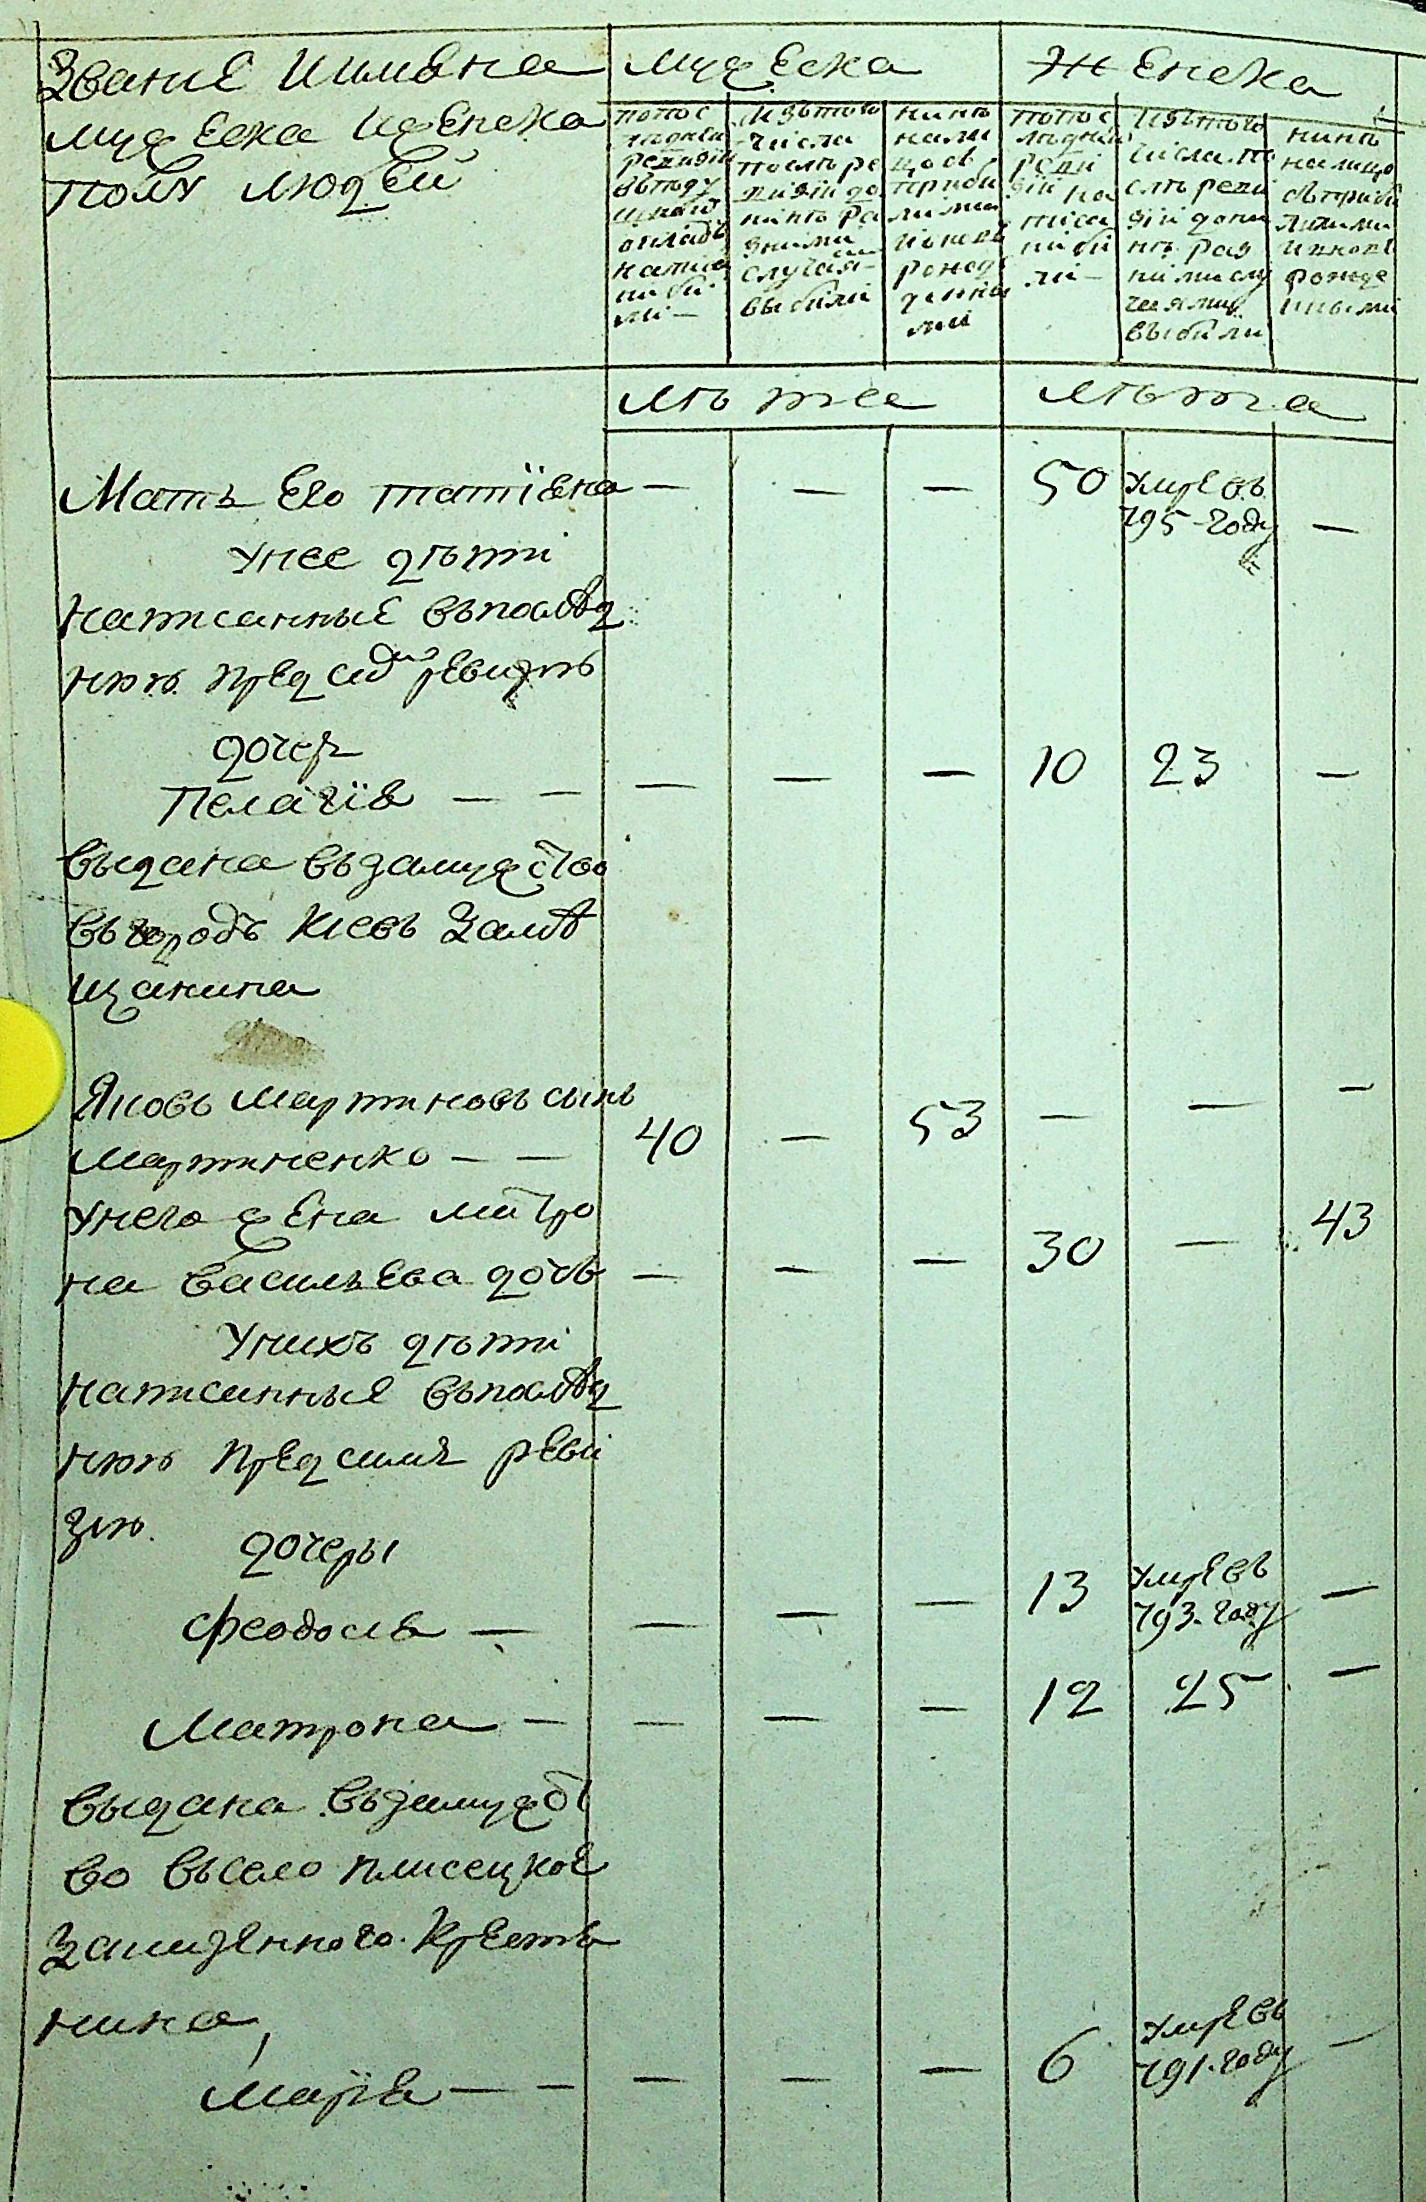 Званіе Иимѣна
Мужеска Иженска
Полу людей
Мужеска
Женска
попос
лѣдней
ревизіи
въгоду
написа
ни бы
ли —
Изътого
числа
послѣ ре
визіи до
нинѣ ра
зними
случая
ми
выбили
нинѣ
нали
цо съ
приби
лими
и новъ
рожде
нны
ми
попос
лѣдней
реви
зіи на
писа
ни би
ли —
Изътого
числа по
слѣ реви
зіи дони
нѣ раз
ними слу
чаями
выбили
нинѣ
налицо
съприбы
лими
ивновь
рожде
нными
лѣта
лѣта
Мать Его татіяна — — — 50 умре въ
795-году —
Унее дѣти
написанные въпослѣд
нюю предсію ревизію
дочер
Пелагія — — — — — 10 23 —
выдана възамужство
въгородъ Кіевъ Замѣ
щанина
Яковъ мартиновъ сынъ
мартиненко — — 40 — 53 — — —
Унего жена матро
на васильева дочь — — — 30 — 43
Унихъ дѣти
написанные въпослѣд
нюю предсимъ реви
зію.
дочеры
Феодосія — — — — 13 умре въ
793-году —
Матрона — — — — 12 25 —
выдана възамужст
во въсело плисецкое
Заказенного крестья
нина,
Марія — — — — — 6 умре въ
791-году —